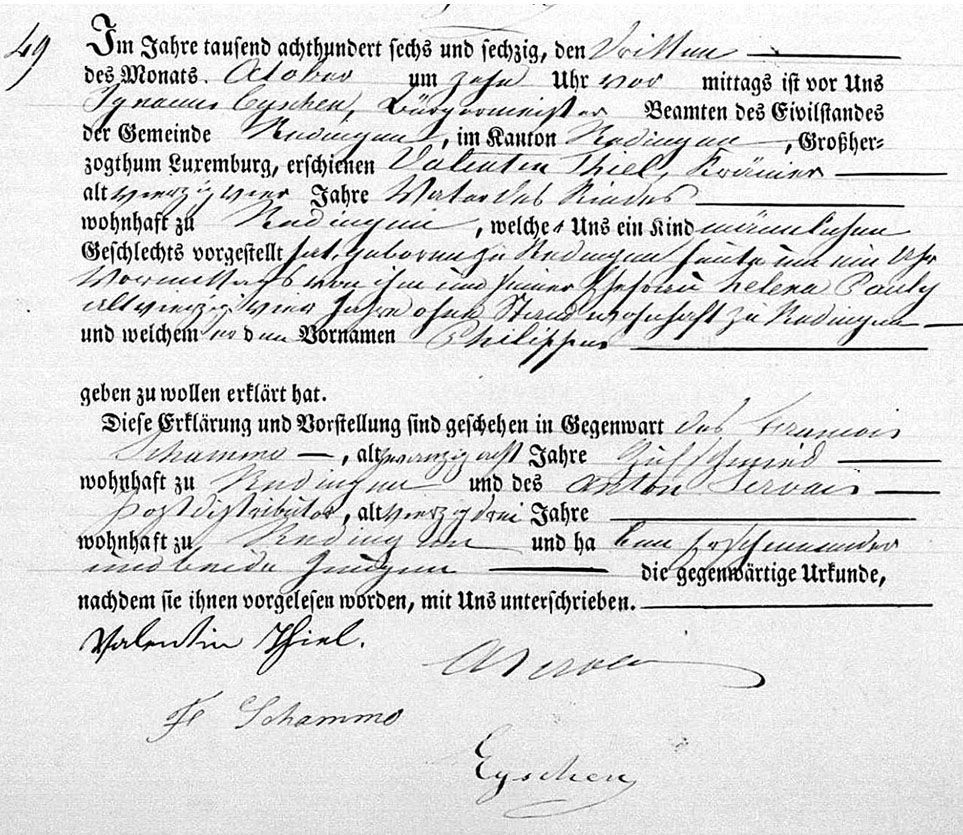 49
Im Jahre tausend achthundert sechs und sechzig, den dritten
des Monats October um zehn Uhr vor mittags ist vor Uns
Ignaus Eyschen, Bürgermeister Beamten des Civilstandes
der Gemeinde Redingen, im Kanton Redingen, Großher-
zogthum Luremburg, erschienen Valentin Thiel, Krämer
alt vierzig vier Jahre Vater des Kindes
wohnhaft zu Redingen, welcher Uns ein Kind männlichen
Geschlechts vorgestellt hat, geboren zu Redingen heute um ein Uhr
Vormittags von ihm und seiner Ehefrau Helena Pauly
alt vierzig vier Jahre ohne Stand wohnhaft zu Redingen
und welchem er den Vornamen Philippus
geben zu wollen erklärt hat.
Diese Erklärung und Vorstellung sind geschehen in Gegenwart des Francois
Schammo, alt zwanzig acht Jahre Hufschmied
wohnhaft zu Redingen und des Anton Servais
Postdistributor, alt vierzig drei Jahre
wohnhaft zu Redingen und ha ben Erscheinender
und beide Zeugen die gegenwärtige Urkunde,
nachdem sie ihnen vorgelesen worden, mit Uns unterschrieben.
Valentin Thiel.
A Servais
Fr Schammo
Eyschen